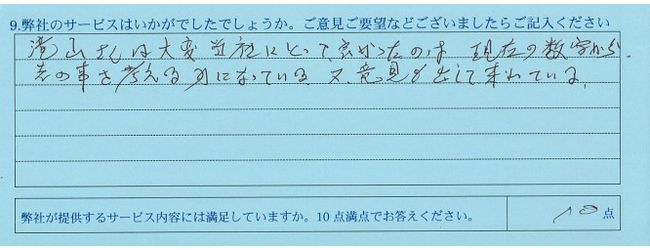 9.弊社のサービスはいかがでしたでしょうか。ご意見ご要望などございましたらご記入ください
滝山さんは大変当社にとって良かったのは 現在の数字から
先の事を考える別になっている 又、意見を出して来れている。
弊社が提供するサービス内容には満足していますか。10点満点でお答えください。 10点